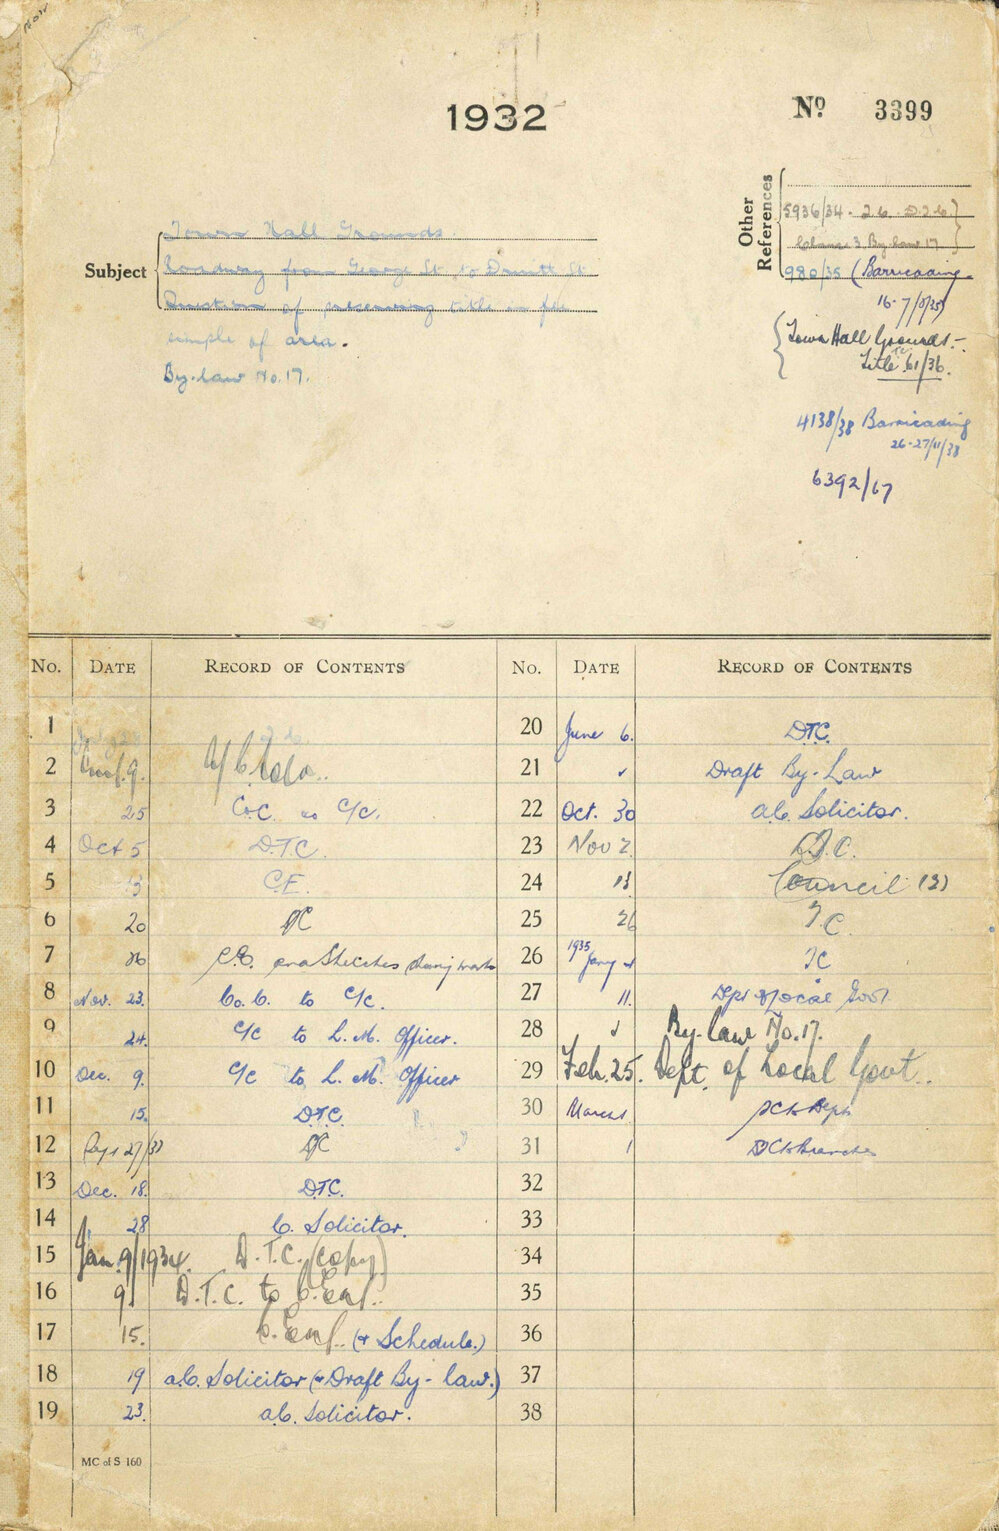 1932
Nº 3399
Other References
5936/34 - 26
Clause 3 By-law 17
980/35 (Barricading
16-7/5/35)
Town Hall Grounds -
Title 61/36.
4138/38 Barricading
26-27/11/38
6392/67
Subject
Town Hall Grounds.
Roadway from George St to Druitt St
Question of preserving title in fee
simple of area.
By-law No. 17.
No. DATE RECORD OF CONTENTS
1
2 9.
3 25 to C/C.
4 Oct 5 D.T.C.
5 13 C.E.
6 20 TC
7 26 C.E. and Sketches
8 Nov. 23. Co. C. to C/C.
9 24. C/C to L. M. Officer.
10 Dec. 9. C/C to L. M. Officer
11 15. D.T.C.
12 27/33
13 Dec. 18. D.T.C.
14 28 C. Solicitor.
15 Jan. 9/1934. D.T.C. (Copy)
16 9. D.T.C. to C. Eng.
17 15. C. Eng. (& Schedule.)
18 19 a/C. Solicitor (& Draft By-law.)
19 23. a/C. Solicitor.
MC of S 160
No. DATE RECORD OF CONTENTS
20 June 6. D.T.C.
21 " Draft By-Law
22 Oct. 30 a/C. Solicitor.
23 Nov 2.
24 13 Council (2)
25 26 T.C.
26 1935 Jany TC
27 11. Dept of Local Govt.
28 " By-law No. 17.
29 Feb. 25. Dept. of Local Govt.
30
31 1
32
33
34
35
36
37
38